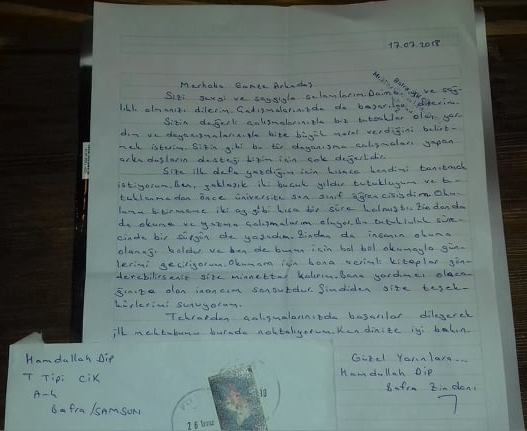 17.07.2018
Merhaba Gamze Arkadaş
Sizi sevgi ve saygıyla selamlarım. Daima ve sağ-
lıklı olmanızı dilerim. Çalışmalarınızda da başarılar dilerim.
Sizin değerli çalışmalarınızla biz tutsaklar olan yar-
dım ve dayanışmalarınızla bize büyük moral verdiğini belirt-
mek isterim. Sizin gibi bu tür dayanışma çalışmaları yapan
arkadaşların desteği bizim için çok değerlidir.
Size ilk defa yazdığım için kısaca kendimi tanıtmak
istiyorum. Ben, yaklaşık iki buçuk yıldır tutukluyum ve tu-
tuklanmadan önce üniversite son sınıf öğrencisiydim. Oku-
lumu bitirmeme iki ay gibi kısa bir süre kalmıştı. Zindanda
da okuma ve yazma çalışmalarım oluyor. Bu tutukluluk süre-
cinde bir sürgün de yaşadım. Zindan da insanın okuma
olanağı oluyor ve ben de bunun için bol bol okumayla gün-
lerimi geçiriyorum. Okumam için bana verimli kitaplar gön-
derebilirseniz size minnettar kalırım. Bana yardımcı olaca-
ğınıza olan inancım sonsuzdur. Şimdiden size teşek-
kürlerimi sunuyorum.
Tekrardan çalışmalarınızda başarılar dileyerek
ilk mektubumu burada noktalıyorum. Kendinize iyi bakın
Güzel Yarınlara...
Hamdullah Dip
Bafra Zindanı
Hamdullah Dip
T Tipi CİK
A-4
Bafra/SAMSUN